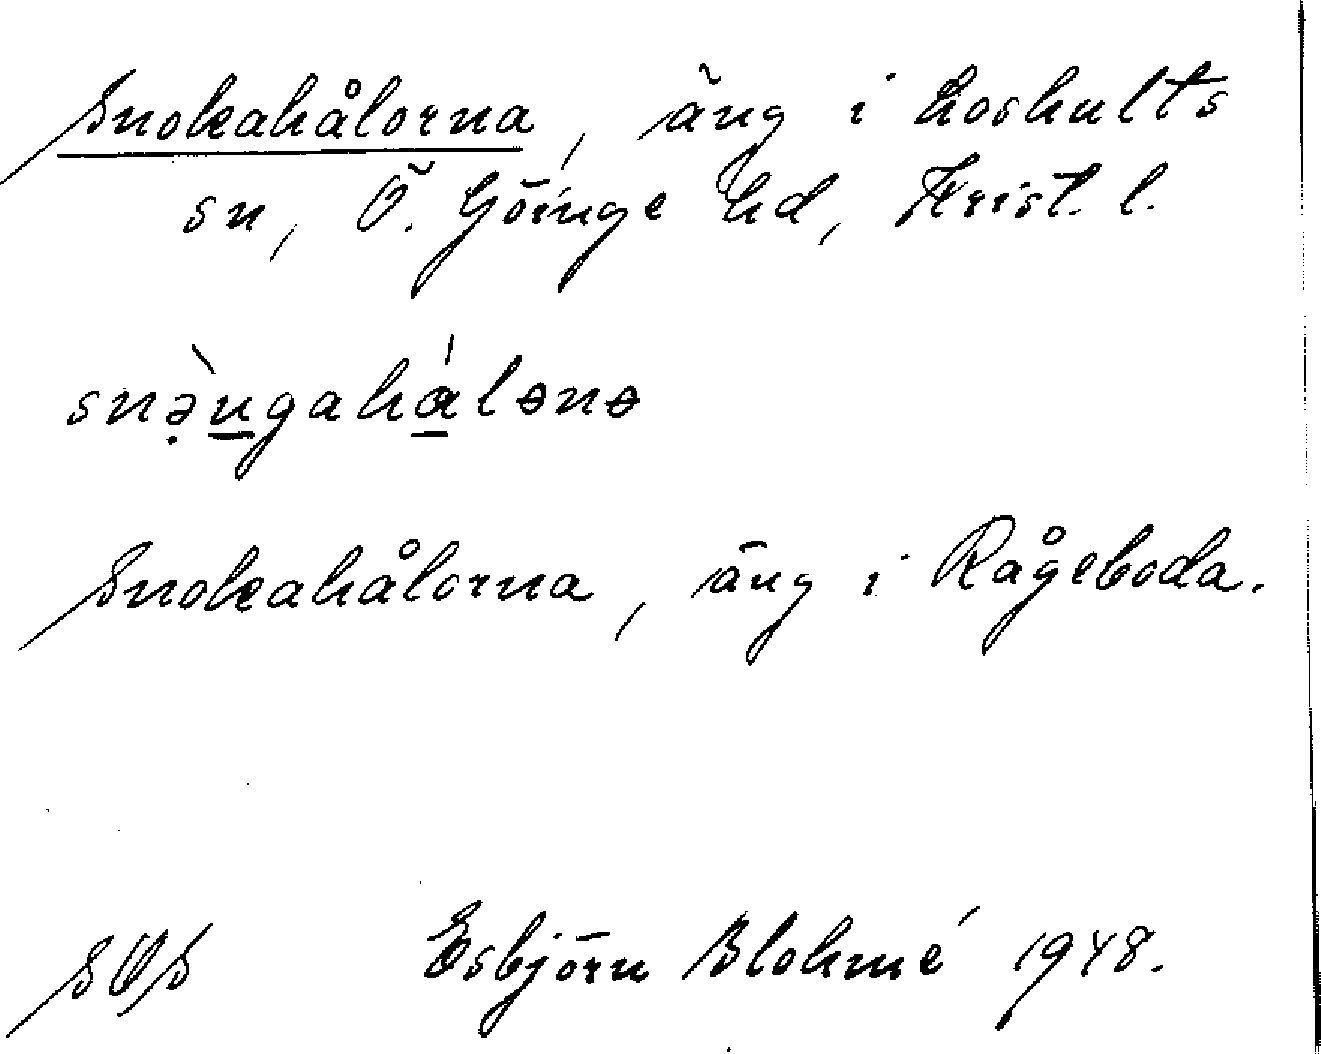 Snokahålorna, äng i Loshults
sn, Ö. Göinge hd, Krist. l.
snə̣̀u̲gahá̲lənə
Snokahålorna, äng i Rågeboda.
SOS Esbjörn Blohmé 1948.